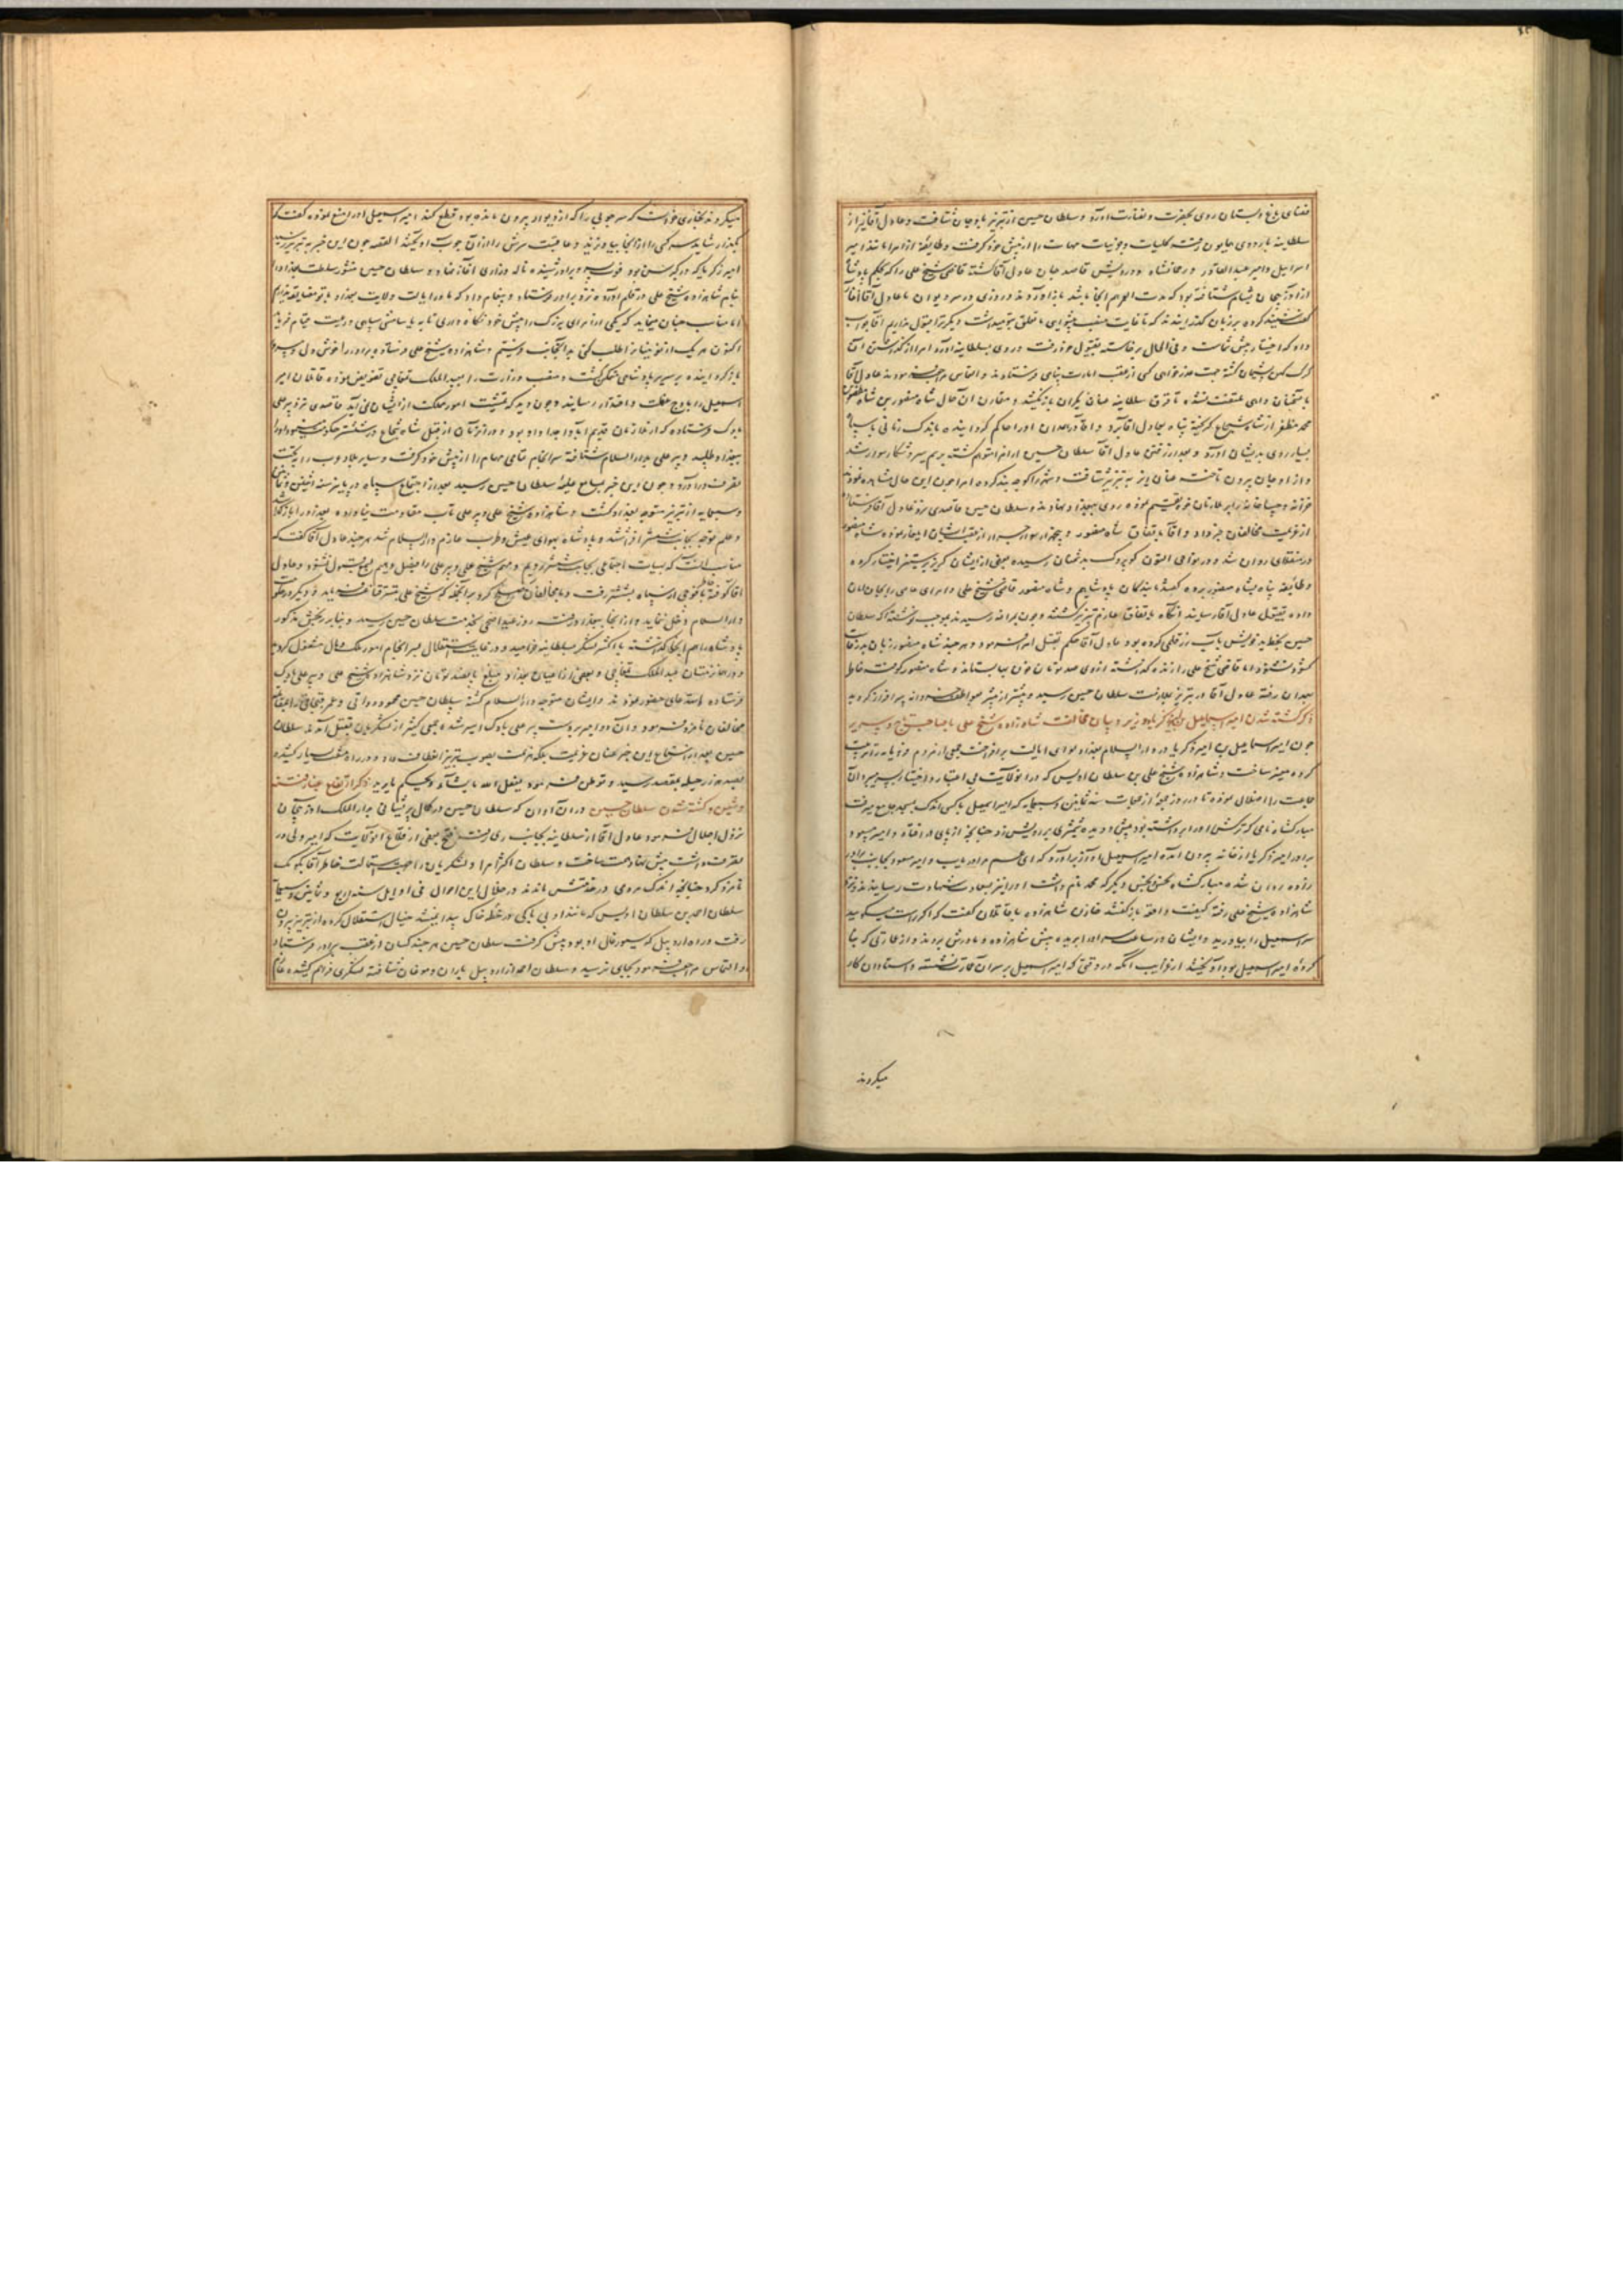 فضای باغ و بستان روی بحضرت و نضارت آورد و سلطان حسین از تبریز باوجان شتافت و عادل آقا نیز از
سلطانیه باردوی همایون رفت و کلیات و جزئیات مهمات را از پیش خود گرفت و طایفهٔ از امرا مانند امیر
اسرائیل و امیر عبدالقادر و رحمانشاه و درویش قاصد جان عادل آقا گشته قاضی شیخ علی را که بحکم پادشاه
از آذربیجان بشام شتافته بود که مدت العمر آنجا باشد باز آوردند و روزی در سر دیوان با عادل آقا آغاز
کرده بر زبان گذرانیدند که تا غایت منصب پیشوایی ما تعلق بتو میداشت دیگر ترا قبول نداریم آقا جواب
داد که اختیار پیش شماست و فی الحال برخاسته بیتول خود رفت و روی بسلطانیه آورد امرا از گذاشتن آقا
گرگ کهن پشیمان گشته جهت عذرخواهی کسی از عقب امارت پناهی فرستادند و التماس مراجعت نمودند عادل آقا
بسخنان واهی ملتفت نشده تا قرق سلطانیه عنان یکران باز نکشید و مقارن آن حال شاه منصور بن شاه مظفر بن
محمد مظفر از شاه شجاع گریخته پناه بعادل آقا برد و آقا در همدان او را حاکم گردانیده باندک زمانی سپاه
بسیار روی بدیشان آورد و بعد از رفتن عادل آقا سلطان حسین از امرا متوهم گشته برسم سیر و شکار سوار شد
و از اوجان بیرون تاخته عنان ریز به تبریز شتافت و شهر را کوچه بند کرده امرا چون این حال مشاهده نمودند
خزانه و جیباخانه را بر ملازمان خود قسمت نموده روی ببغداد نهادند و سلطان حسین قاصدی نزد عادل آقا فرستاد
از عزیمت مخالفان خبر داد و آقا باتفاق شاه منصور و پنجهزار سوار جرار از عقب ایشان ایلغار نموده شاه منصور
در منقلای روان شد و در نواحی التون کوپروک بدشمنان رسیده بعضی از ایشان گریز بر ستیز اختیار کرده
و طایفهٔ پناه بشاه منصور برده گفتند ما بندگان پادشاهیم و شاه منصور قاضی شیخ علی و امرای عاصی را بجان امان
داده بقتل عادل آقا رسانید آنگاه باتفاق عازم تبریز گشتند و چون بمراغه رسیدند بموجب نوشتهٔ که سلطان
حسین بخط ید خویش باب زر قلمی کرده بود عادل آقا حکم بقتل امرا فرمود و هر چند شاه منصور زبان بشفاعت
گشود نشنود اما قاضی شیخ علی را زنده گذاشته از وی صد تومان خون بها بستاند و شاه منصور کوفت خاطر
بهمدان رفته عادل آقا در تبریز بملازمت سلطان حسین رسید و بیشتر از پیشتر بعواطف خسروانه سرافراز گردید
ذکر کشته شدن امیر اسمعیل بن امیر زکریاء وزیر و بیان مخالفت شاهزاده شیخ علی با صاحب تاج و سریر
چون امیر اسماعیل بن امیر زکریا در دارالسلام بغداد لوای ایالت برافراخت جمعی از مردم فرومایه را تربیت
کرده معتبر ساخت و شاهزاده شیخ علی بن سلطان اویس که در آنولایت بی اعتبار و اختیار بسر میبرد آن
جماعت را اضلال نموده تا در روز جمعهٔ از جمعات سنه ثمانین و سبعمایه که امیر اسمعیل با کسی اندک بمسجد جامع میرفت
مبارکشاه نامی که ترکش او را برداشته بود پیش دویده شمشیری بر رویش زد چنانچه از پای در افتاد و امیر مسعود
برادر امیر زکریا از خانه بیرون آمده امیر اسمعیل آواز برآورد که ای عم مرا دریاب و امیر مسعود بجانب برادر
زاده روان شده مبارکشاه بخون و شخصی دیگر که محمد نام داشت او را نیز بسعادت شهادت رسانیدند و نزد
شاهزاده شیخ علی رفته کیفیت واقعه باز گفتند خازن شاهزاده با قاتلان گفت که اگر راست میگویید
سر اسمعیل را بیاورید و ایشان در ساعت سر او را بریده پیش شاهزاده و مادرش بردند و از عمارتی که بنا
کردهٔ امیر اسمعیل بود درآویختند از غرایب آنکه در وقتی که امیر اسمعیل بر سر آن عمارت نشسته و استادان کار
میکردند
میکردند نجاری خواست که سر چوبی را که از دیوار بیرون مانده بود قطع کند امیر اسمعیل او را منع نموده گفت که
بگذار شاید سر کسی را از آنجا بیاویزند و عاقبت سرش را از آن چوب آویختند القصه چون این خبر به تبریز رسید
امیر زکریا که در کبر سن بود خون پسر و برادر شنیده ناله و زاری آغاز نهاد و سلطان حسین منشور سلطنت بغداد را
بنام شاهزاده شیخ علی در قلم آورده نزد برادر فرستاد و پیغام داد که ما در ایالت ولایت بغداد با تو مضایقه نداریم
اما مناسب چنان مینماید که یکی از امرای بزرگ را پیش خود نگاه داری تا به پا سامشی سپاهی و رعیت قیام نماید
اکنون هر یک از نوئینان را طلب کنی بدآنجانب فرستیم و شاهزاده شیخ علی فرستاده برادر را خوش دل و مسرور
باز گردانیده بر سریر پادشاهی متمکن گشت و منصب وزارت را بعبد الملک تمغاچی تفویض نموده قاتلان امیر
اسمعیل را باوج مکنت و اقتدار رسانید و چون دید که تمشیت امور مملکت از ایشان نمی آید قاصدی نزد پیر علی
بادک فرستاده که از ملازمان قدیم آبا و اجداد او بود و در آنزمان از قبل شاه شجاع در شستر حکومت مینمود او را
ببغداد طلبید و پیر علی بدارالسلام شتافته سرانجام تمامی مهام را از پیش خود گرفت و سایر بلاد عرب را بتحت
تصرف درآورد و چون این خبر بمسامع علیهٔ سلطان حسین رسید بعد از اجتماع سپاه در پاییز سنه اثنین و ثمانین
و سبعمایه از تبریز متوجه بغداد گشت و شاهزاده شیخ علی و پیر علی تاب مقاومت نیاورده بغداد را باز گذاشتند
و علم توجه بجانب شستر افراشتند و پادشاه بهوای عیش و طرب عازم دارالسلام شد هر چند عادل آقا گفت که
مناسب آنست که بهیات اجتماعی بجانب شستر رویم و مهم شیخ علی و پیر علی را فیصل دهیم بسمع قبول نشنود و عادل
آقا کوفته خاطر با فوجی از سپاه بشستر رفت و با مخالفان صلح کرد بر آنجمله که شیخ علی بشستر قناعت نماید و دیگر در حکومت
دارالسلام دخل ننماید و از آنجا ببغداد رفته روز عید اضحی بخدمت سلطان حسین رسید و بنابر رنجش مذکور
پادشاه را هم آنجا گذاشته با اکثر لشکر بسلطانیه خرامید و در غایت استقلال بسرانجام امور ملک و مال مشغول گردید
و در آخر زمستان عبد الملک تمغاچی و بعضی از اعیان بغداد مبلغ پانصد تومان نزد شاهزاده شیخ علی و پیر علی بادک
فرستاده استدعای حضور نمودند و ایشان متوجه دارالسلام گشته سلطان حسین محمود دواتی و عمر قبچاقی را باستقبال
مخالفان نامزد فرمود و آن دو امیر بر دست پیر علی بادک اسیر شده جمعی کثیر از لشکریان بقتل آمدند سلطان
حسین بعد از استماع این خبر عنان عزیمت بلکه هزیمت بصوب تبریز انعطاف داد و در راه مشقت بسیار کشیده
بصد هزار حیله بمقصد رسید و توطن فرمود یفعل الله ما یشاء و یحکم ما یرید ذکر ارتفاع غبار فتنه
و شین و کشته شدن سلطان حسین در آن آوان که سلطان حسین در کمال پریشانی بدارالملک آذربیجان
نزول اجلال فرمود عادل آقا از سلطانیه بجانب ری رفته فتح بعضی از قلاع آنولایت که امیر ولی در
تصرف داشت پیش نهاد همت ساخت و سلطان اکثر امرا و لشکریان را جهت استمالت خاطر آقا بکومک
نامزد کرد چنانچه اندک مردمی در خدمتش ماندند در خلال این احوال فی اوایل سنه اربع و ثمانین و سبعمایه
سلطان احمد بن سلطان اویس که مانند او بی باکی در خطهٔ خاک پیدا نشد خیال استقلال کرده از تبریز بیرون
رفت و راه اردبیل که سیورغال او بود پیش گرفت سلطان حسین هر چند کسان از عقب برادر فرستاد
و التماس مراجعت فرمود بجایی نرسید و سلطان احمد از اردبیل باران و موغان شتافته لشکری فراهم کشیده عازم